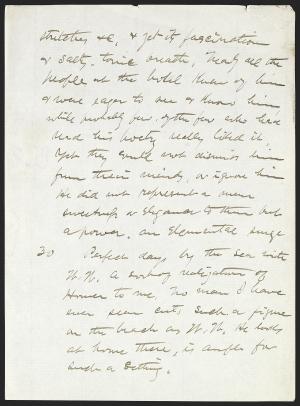 stretches &c, & yet its fascination
& salty, tonic breath, Nearly all the
people at the hotel knew of him
& were eager to see & know him
while probably few of the few who had
read his poetry really liked it.
Yet they could not dismiss him
from their minds, or ignore him
He did not represent a mere
sweetness or elegance to them but
a power, an elemental surge
30 Perfect day, by the sea with
W.W. A sort of realization of
Homer to me. No man I have
ever seen cuts such a figure
on the beach as W.W. He looks
at home there, is ample for
such a setting.